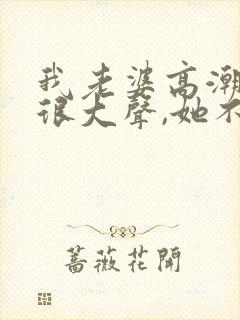 我老婆高潮
很大聲,她不
薔薇花開